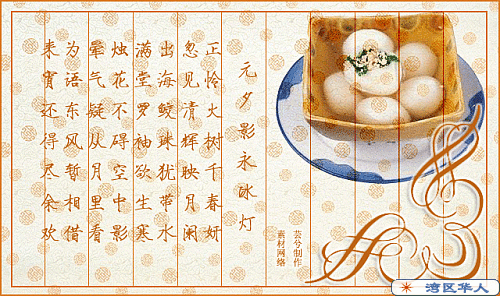 元夕影永冰灯
正怜火树千春妍
忽见清辉映月阑
出海鲛珠犹带水
满堂罗袖欲生寒
烛花不碍空中影
晕气疑从月里看
为语东风暂相借
来宵还得尽余欢
芸兮制作
素材网络
湾区华人